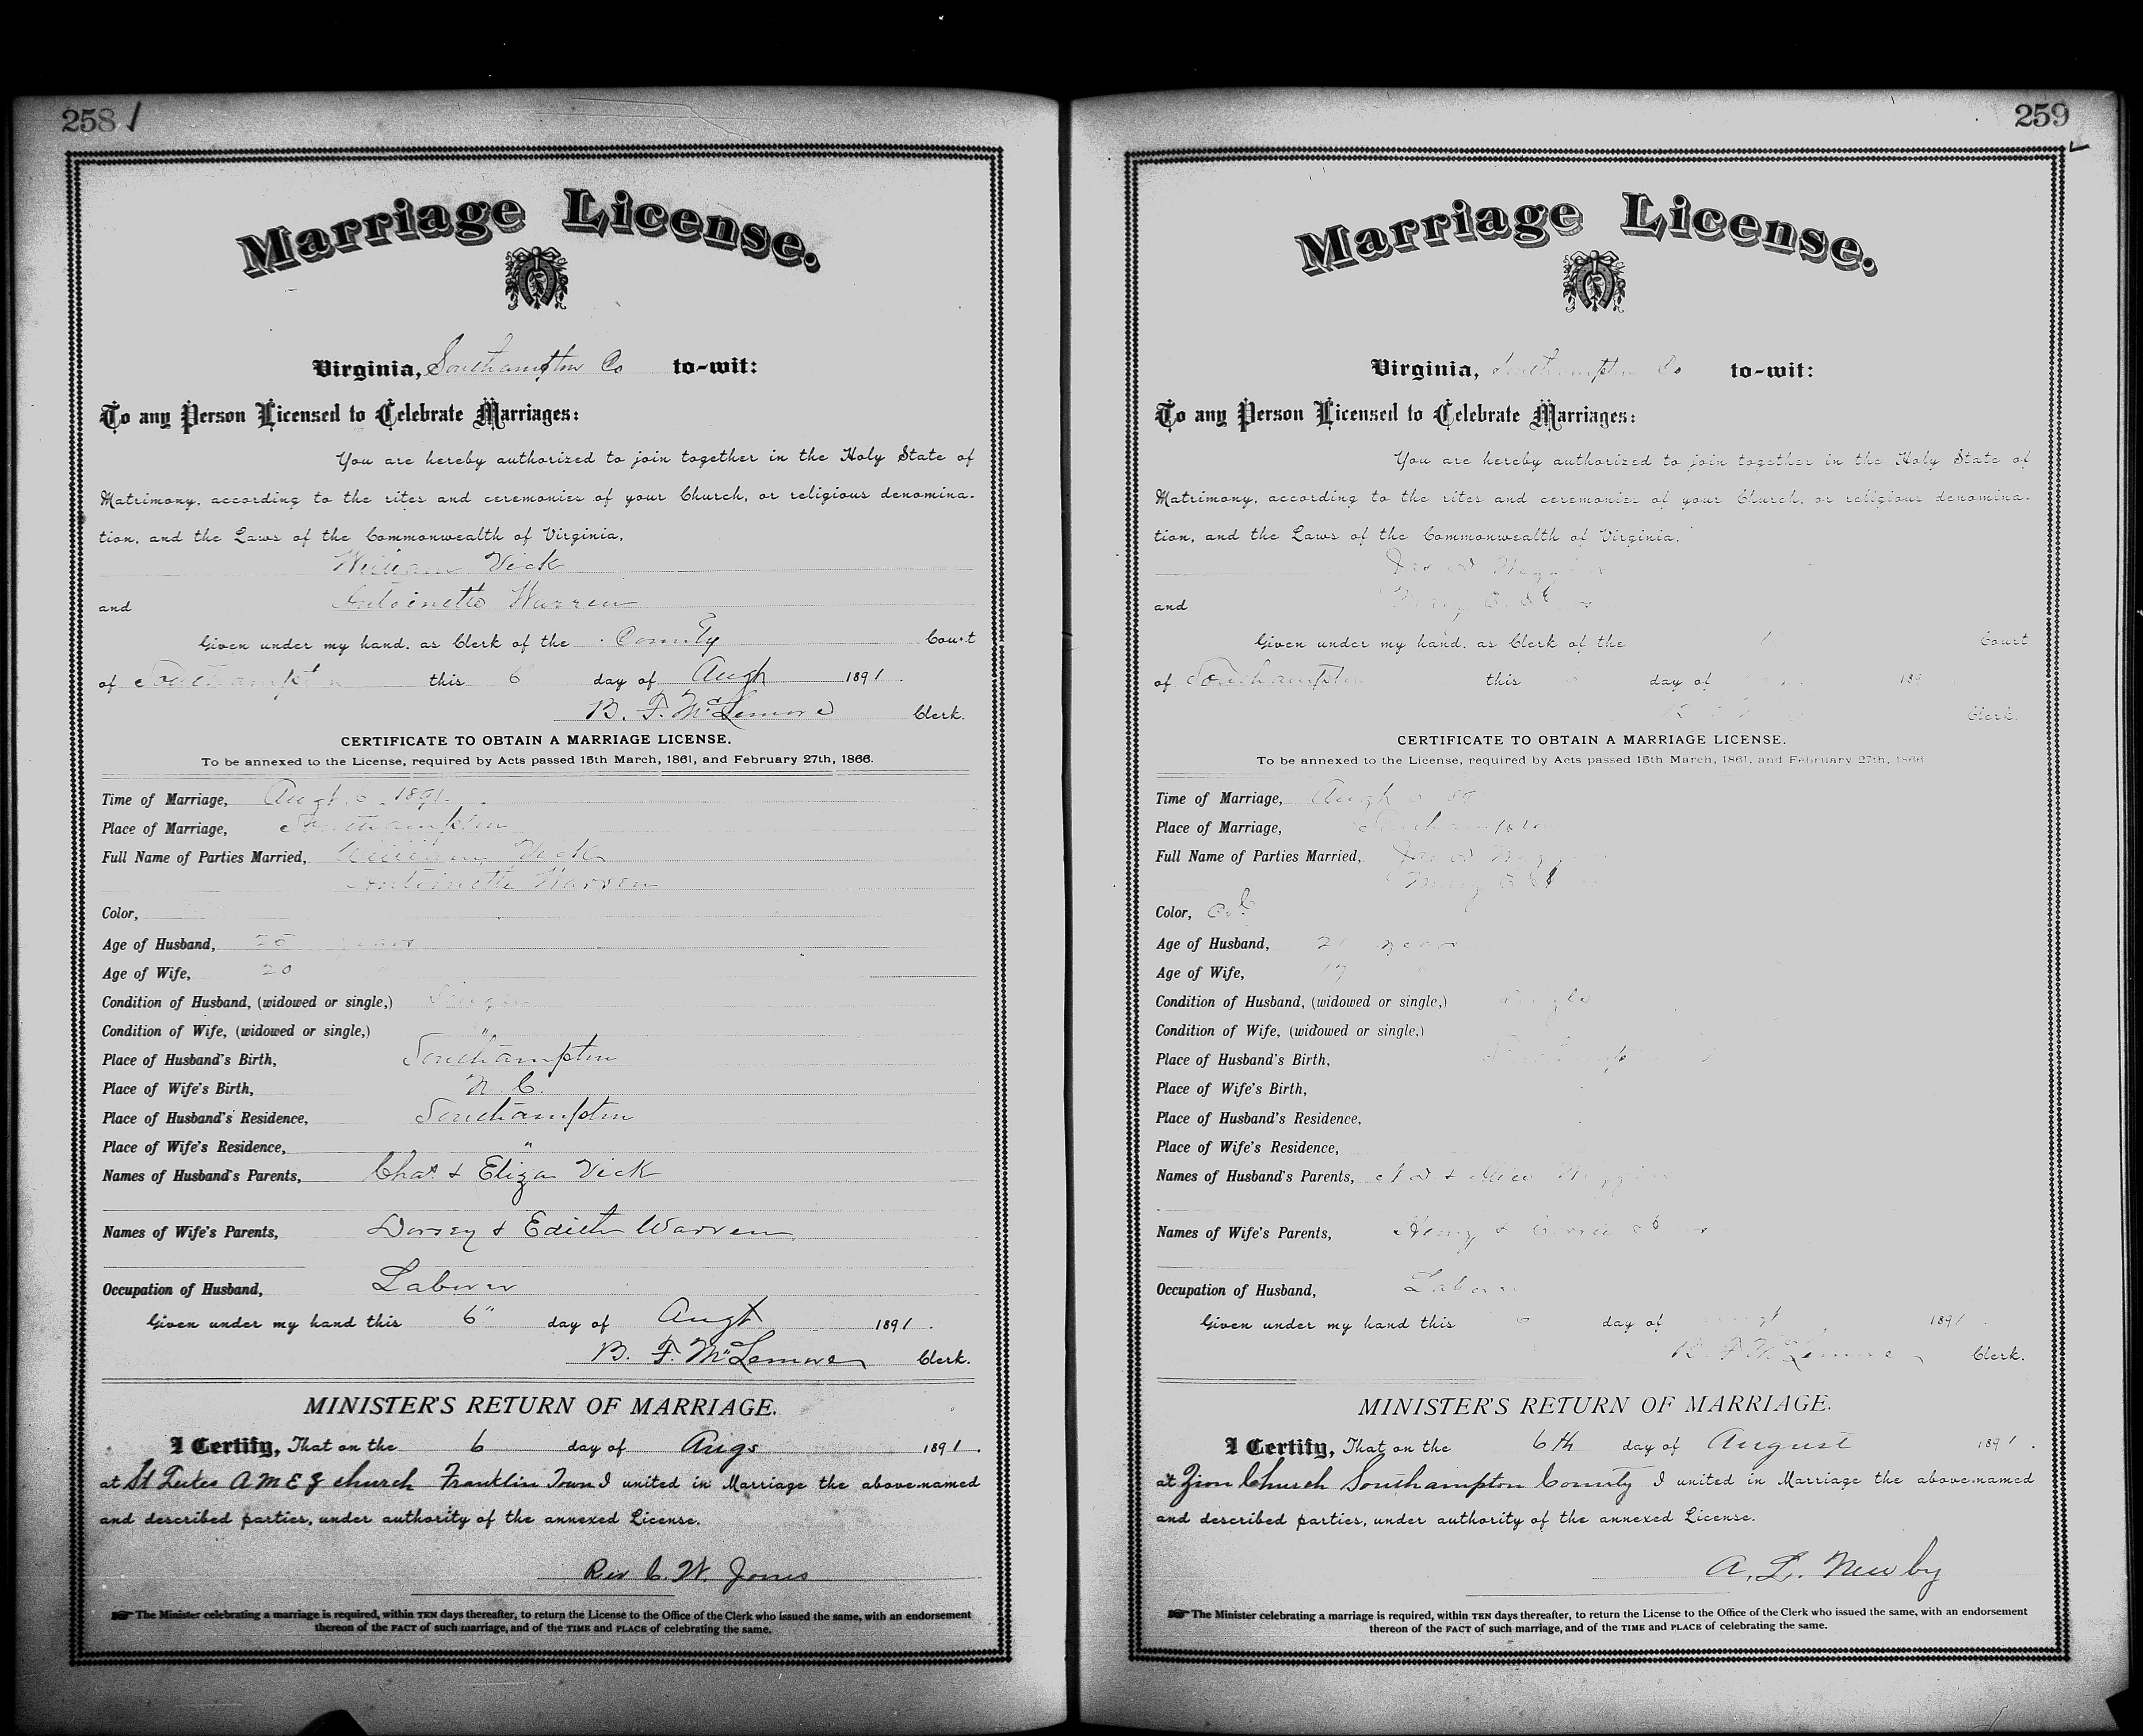 258
Marriage License.
Virginia, Southampton Co to-wit:
To any Person Licensed to Celebrate Marriages:
You are hereby authorized to join together in the Holy State of
Matrimony, according to the rites and ceremonies of your Church, or religious denomina-
tion, and the Laws of the Commonwealth of Virginia,
William Vick
and Antoinette Warren
Given under my hand, as Clerk of the County Court
of Southampton this 6 day of Augt 1891.
B. F. McLemore Clerk.
CERTIFICATE TO OBTAIN A MARRIAGE LICENSE.
To be annexed to the License, required by Acts passed 15th March, 1861, and February 27th, 1866.
Time of Marriage, Augt 6 1891
Place of Marriage, Southampton
Full Name of Parties Married, William Vick
Antoinette Warren
Color,
Age of Husband, 25 years
Age of Wife, 20 "
Condition of Husband, (widowed or single,) Single
Condition of Wife, (widowed or single,) "
Place of Husband's Birth, Southampton
Place of Wife's Birth, N. C.
Place of Husband's Residence, Southampton
Place of Wife's Residence, "
Names of Husband's Parents, Chas. & Eliza Vick
Names of Wife's Parents, Dorsey & Edith Warren
Occupation of Husband, Laborer
Given under my hand this 6" day of Augt 1891.
B. F. McLemore Clerk.
MINISTER'S RETURN OF MARRIAGE.
I Certify, That on the 6 day of Augs 1891.
at St Lukes A M E Z church Franklin Town I united in Marriage the above-named
and described parties, under authority of the annexed License.
Rev C. W. Jones
The Minister celebrating a marriage is required, within TEN days thereafter, to return the License to the Office of the Clerk who issued the same, with an endorsement
thereon of the FACT of such marriage, and of the TIME and PLACE of celebrating the same.
259
Marriage License.
Virginia, Southampton Co to-wit:
To any Person Licensed to Celebrate Marriages:
You are hereby authorized to join together in the Holy State of
Matrimony, according to the rites and ceremonies of your Church, or religious denomina-
tion, and the Laws of the Commonwealth of Virginia,
and Mary E.
Given under my hand, as Clerk of the Court
of Southampton this day of 189
Clerk.
CERTIFICATE TO OBTAIN A MARRIAGE LICENSE.
To be annexed to the License, required by Acts passed 15th March, 1861, and February 27th, 1866.
Time of Marriage, Augt 6
Place of Marriage, Southampton
Full Name of Parties Married,
Mary E.
Color, Col
Age of Husband, 21 years
Age of Wife, 17
Condition of Husband, (widowed or single,) Single
Condition of Wife, (widowed or single,)
Place of Husband's Birth, Southampton
Place of Wife's Birth,
Place of Husband's Residence,
Place of Wife's Residence,
Names of Husband's Parents,
Names of Wife's Parents, Henry &
Occupation of Husband, Laborer
Given under my hand this 6 day of Augt 1891.
B. F. McLemore Clerk.
MINISTER'S RETURN OF MARRIAGE.
I Certify, That on the 6th day of August 1891.
at Zion Church Southampton County I united in Marriage the above-named
and described parties, under authority of the annexed License.
A. L. Newby
The Minister celebrating a marriage is required, within TEN days thereafter, to return the License to the Office of the Clerk who issued the same, with an endorsement
thereon of the FACT of such marriage, and of the TIME and PLACE of celebrating the same.